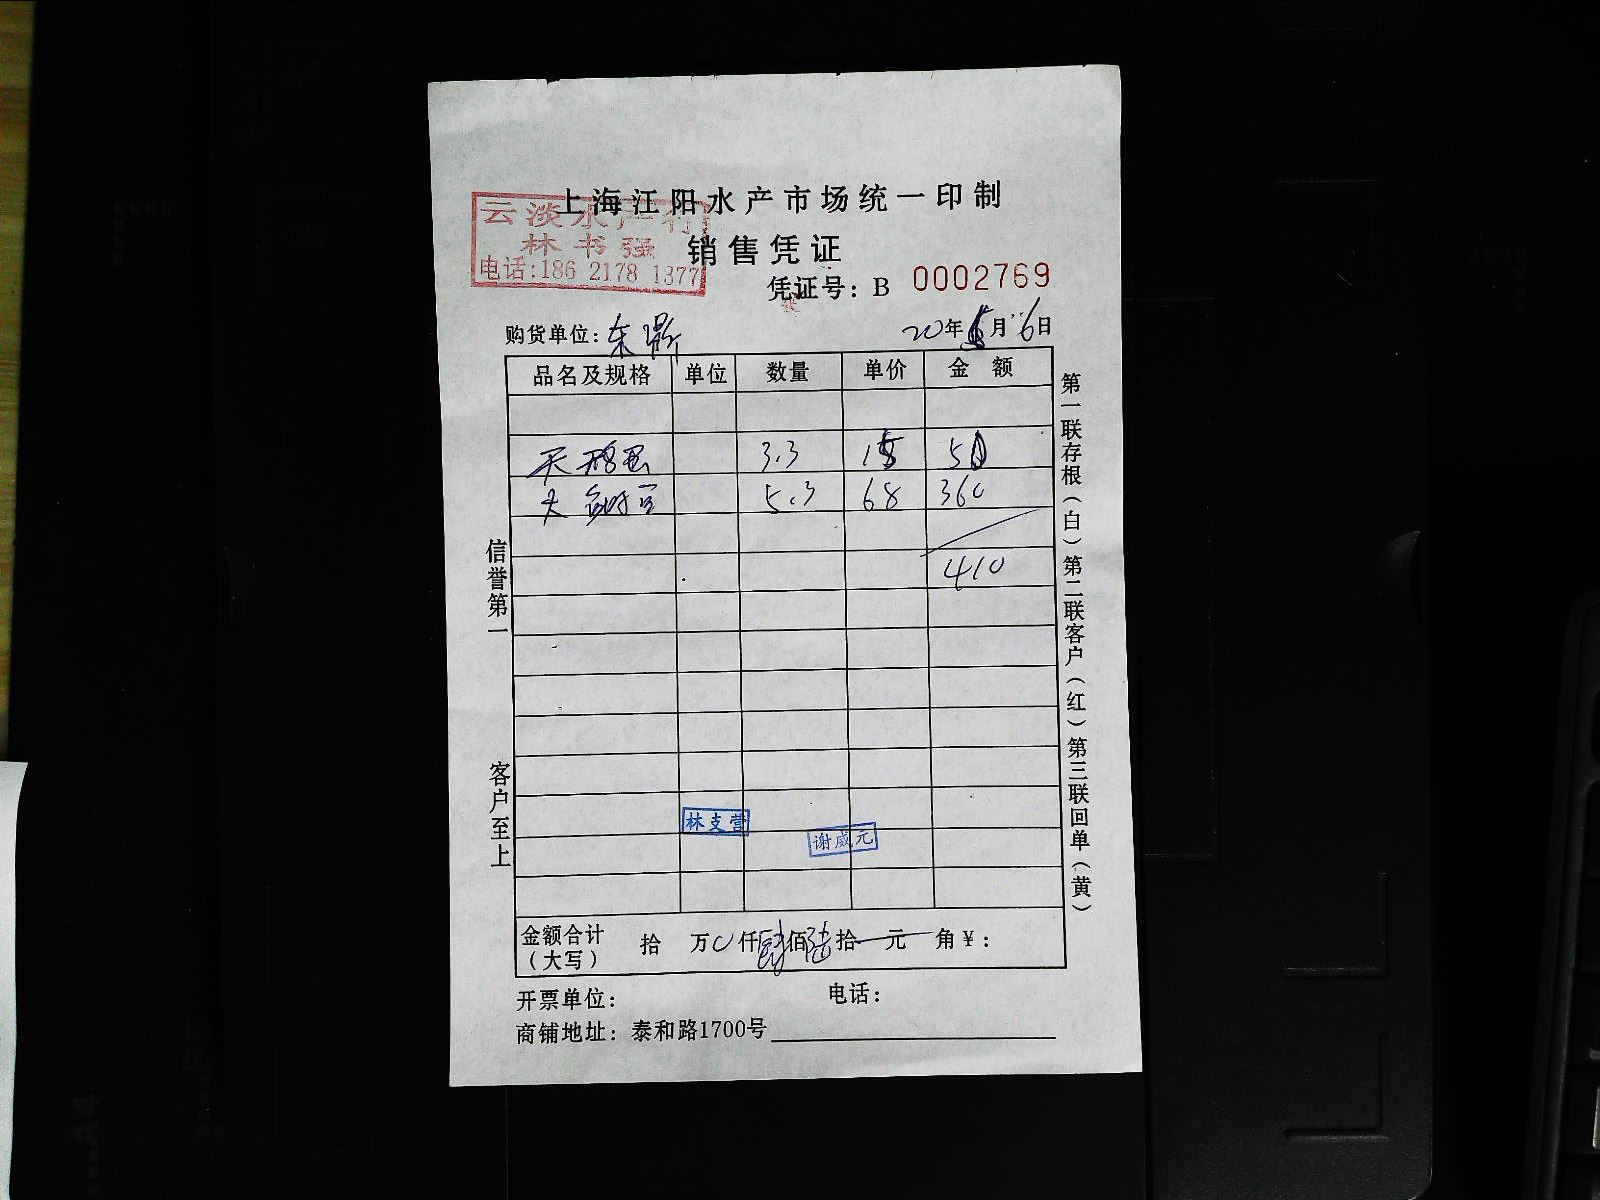 上海江阳水产市场统一印制
云淡水产行
林书强
电话:186 2178 1377
销售凭证
凭证号: B 0002769
购货单位: 东 20年 月 6日
品名及规格 单位 数量 单价 金额
天鹅蛋 3.3 15 50
大 5.3 68 360
410
信誉第一
客户至上
第一联存根(白)第二联客户(红)第三联回单(黄)
林支营
谢成元
金额合计
(大写)
拾 万0仟肆佰 拾 元 角¥:
开票单位: 电话:
商铺地址: 泰和路1700号